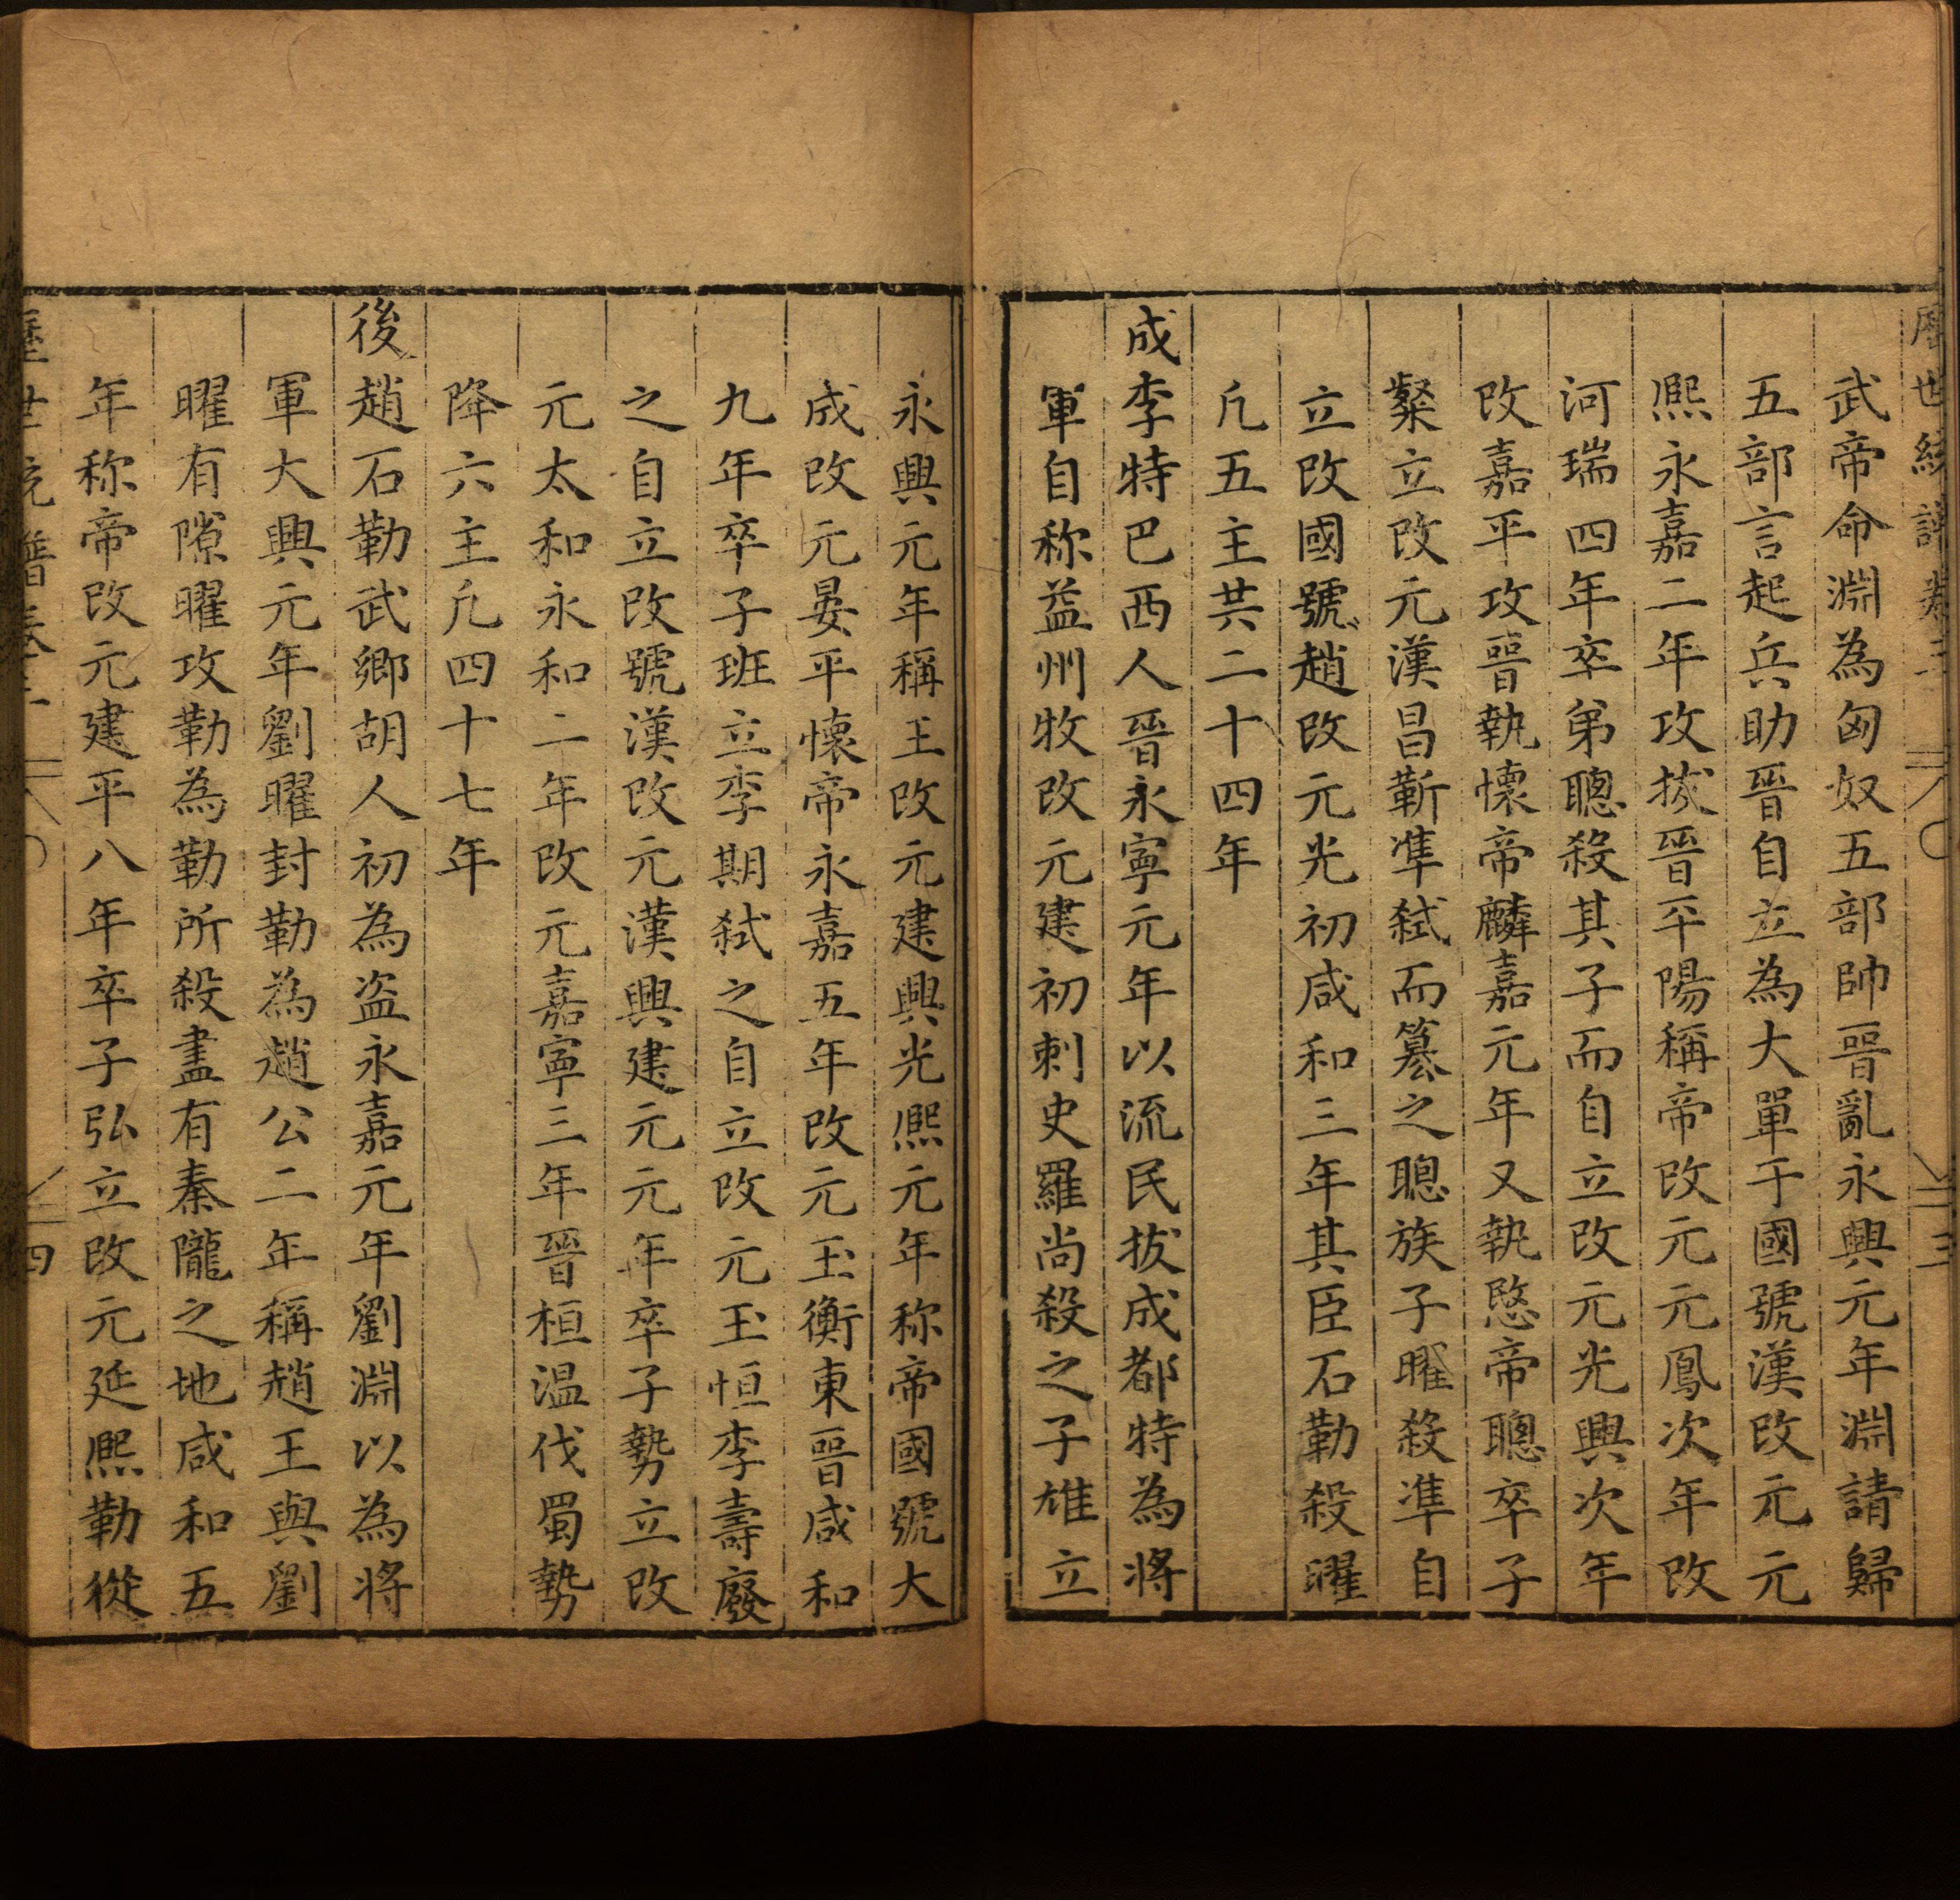 歷世統譜卷三 三
武帝命淵為匈奴五部帥晋亂永興元年淵請歸
五部言起兵助晋自立為大單于國號漢改元元
熙永嘉二年攻拔晋平陽稱帝改元元鳳次年改
河瑞四年卒弟聰殺其子而自立改元光興次年
改嘉平攻晋執懷帝麟嘉元年又執愍帝聰卒子
粲立改元漢昌靳凖弑而簒之聰族子曜殺凖自
立改國號趙改元光初咸和三年其臣石勒殺曜
凢五主共二十四年
成李特巴西人晉永寧元年以流民拔成都特為將
軍自称益州牧改元建初刺史羅尚殺之子雄立
永興元年稱王改元建興光熙元年称帝國號大
成改元晏平懷帝永嘉五年改元玉衡東晋咸和
九年卒子班立李期弑之自立改元玉恒李壽廢
之自立改號漢改元漢興建元元年卒子勢立改
元太和永和二年改元嘉寧三年晉桓温伐蜀勢
降六主凢四十七年
後趙石勒武鄉胡人初為盗永嘉元年劉淵以為將
軍大興元年劉曜封勒為趙公二年稱趙王與劉
曜有隙曜攻勒為勒所殺盡有秦隴之地咸和五
年称帝改元建平八年卒子弘立改元延熙勒從
歷世統譜卷三 四